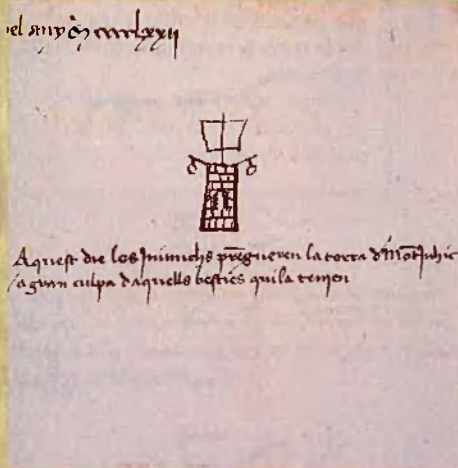 el any M cccclxxii
Aquest die los Inimichs pregueren la torra d'mot Juhic
a gran culpa daquells besties quila tenien